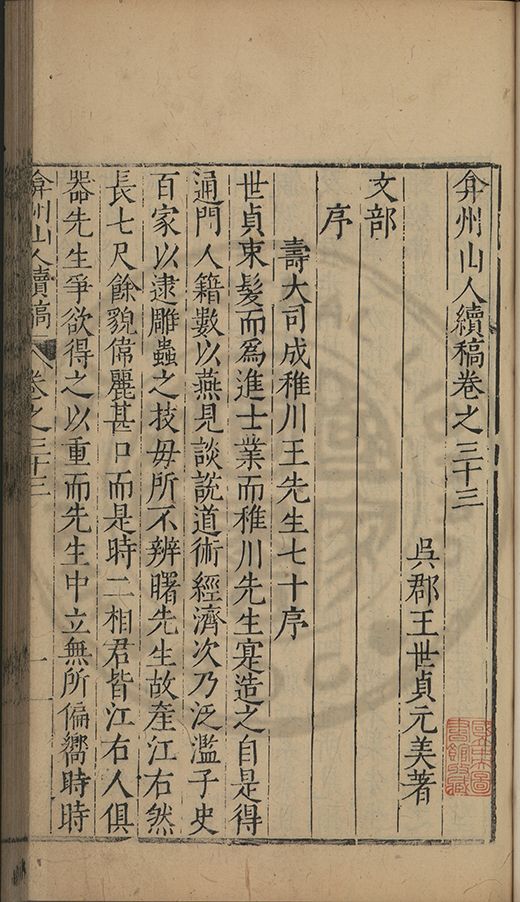 弇州山人續稿卷之三十三
吳郡王世貞元美著
文部
序
壽大司成稚川王先生七十序
世貞束髮而為進士業而稚川先生寔造之自是得
通門人籍數以燕見談說道術經濟次乃泛濫子史
百家以逮雕蟲之技毋所不辨曙先生故産江右然
長七尺餘貌偉麗甚口而是時二相君皆江右人俱
器先生爭欲得之以重而先生中立無所偏嚮時時
弇州山人續稿 卷之三十三 一